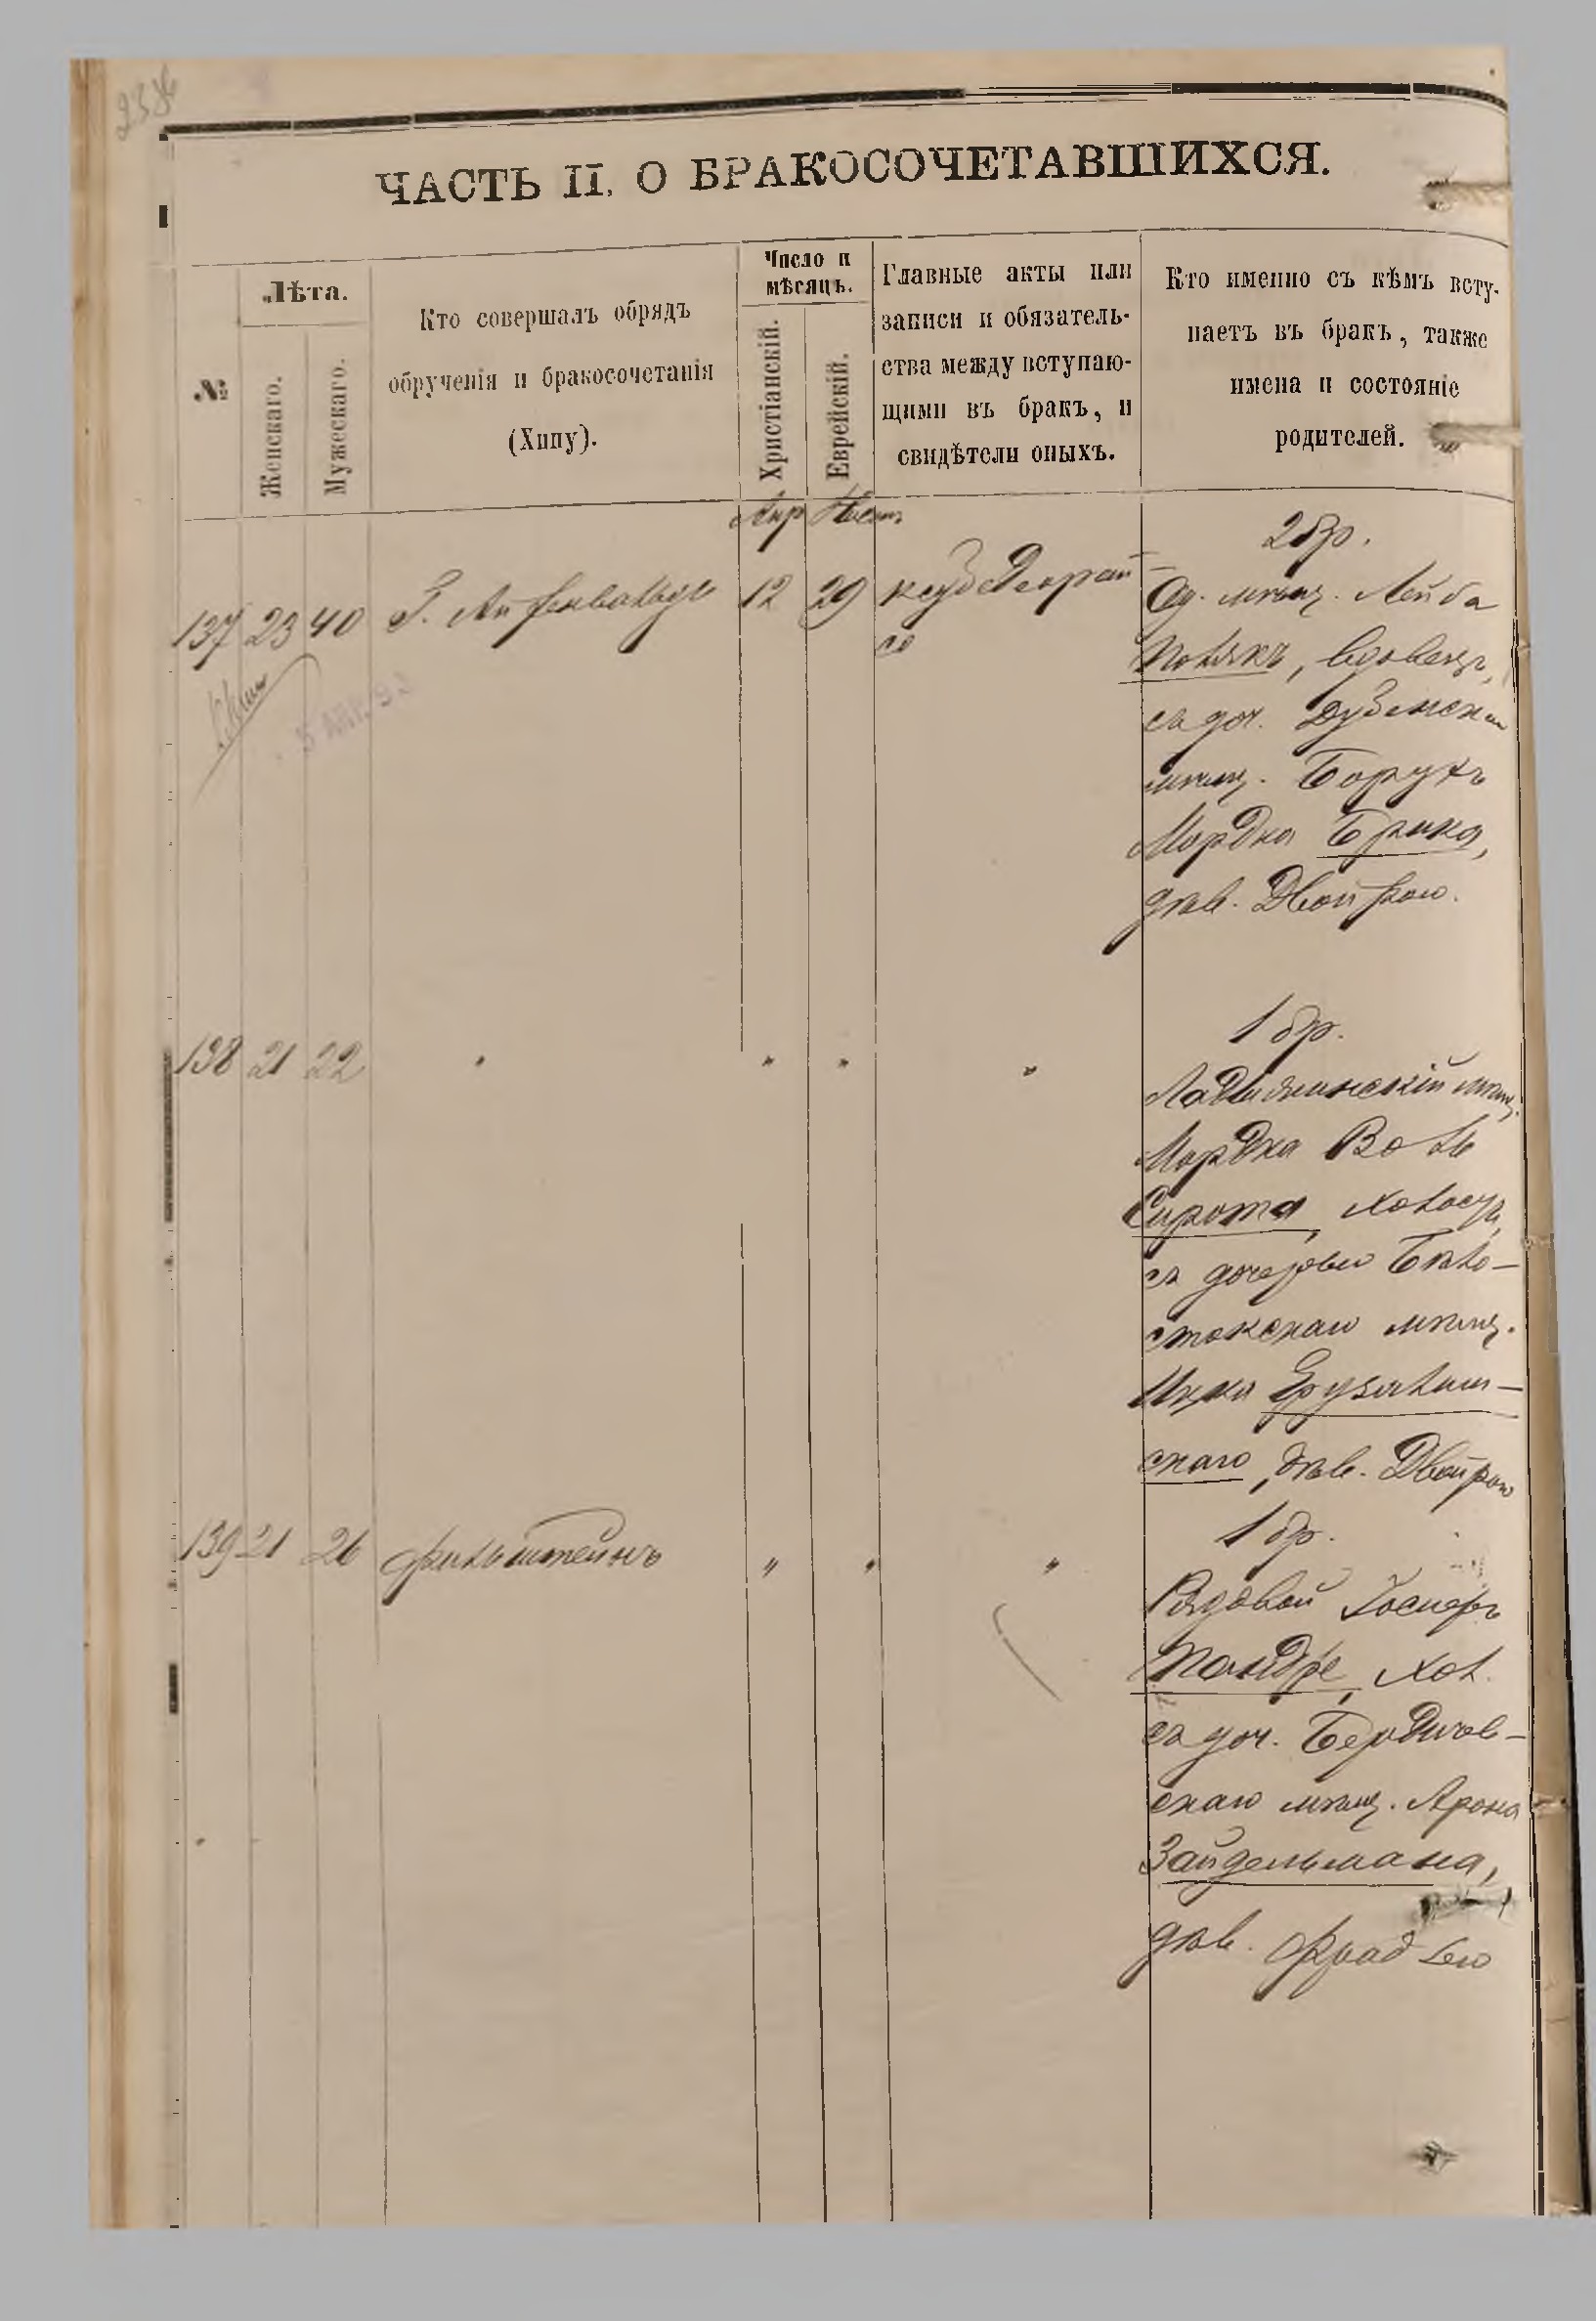 ЧАСТЬ II. О БРАКОСОЧЕТАВШИХСЯ.
№
Лѣта.
Женскаго.
Мужескаго.
Кто совершалъ обрядъ
обрученія и бракосочетанія
(Хипу).
Число и
мѣсяцъ.
Христіанскій.
Еврейскій.
Главные акты или
записи и обязатель-
ства между вступаю-
щими въ бракъ, и
свидѣтели оныхъ.
Кто именно съ кѣмъ всту-
паетъ въ бракъ, также
имена и состояніе
родителей.
Апр Нисан
137 23 40 12 29
2 бр.
Од. мѣщ. Лейба
Полякъ, вдовецъ,
съ доч. Дубенскаго
мѣщ. Борухъ
Мордка Брика,
дѣв. Двойрою.
138 21 22 " " " "
1 бр.
Ладыжинскій мѣщ.
Мордка Воль
Сирота, холост,
съ дочерью Бѣло-
стокскаго мѣщ.
Ицка Ерузалим-
скаго, дѣв. Двойрою
139 21 26 Фихьштейнъ " " "
1 бр.
Рядовой
Пандре, хол.
съ доч. Бердичев-
скаго мѣщ. Арона
Зайдельмана,
дѣв. Фрадлею